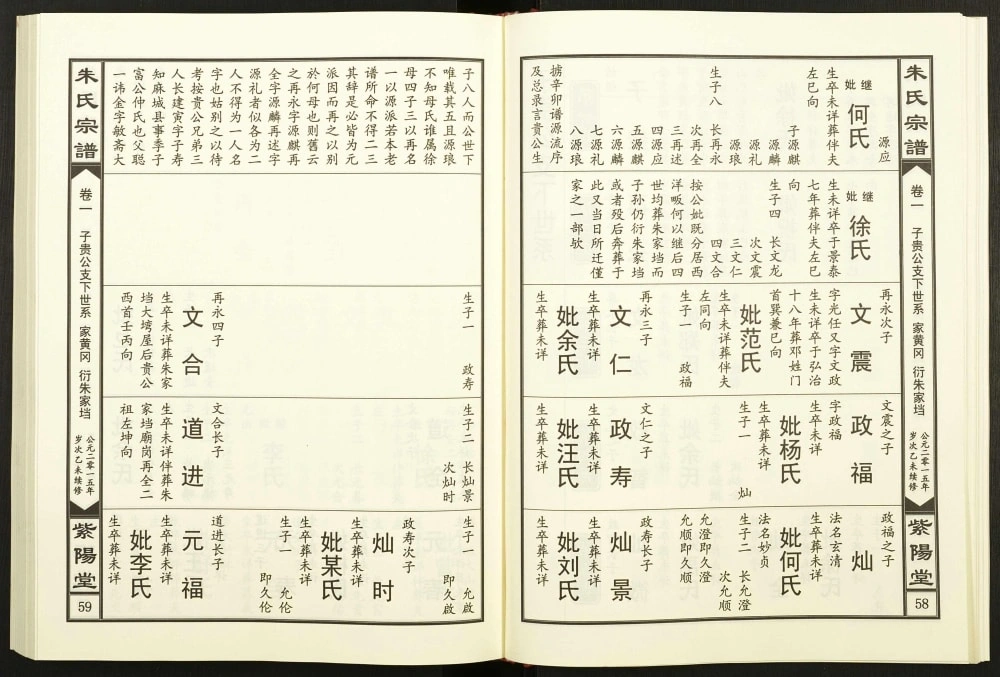 朱氏宗譜
卷一 子贵公支下世系 家黄冈 衍朱家垱
公元二零一五年
岁次乙未续修
紫陽堂
58
源应
继
妣 何氏
生卒未详葬伴夫
左巳向
子源麒
源麟
源礼
源琅
生子八 长再永
次再全
三再述
四源应
五源麒
六源麟
七源礼
八源琅
掳辛卯谱源流序
及总录言贵公生
继
妣 徐氏
生未详卒于景泰
七年葬伴夫左巳
向
生子四 长文龙
次文震
三文仁
四文合
按公妣既分居西
洋畈何以继后四
世均葬朱家垱而
子孙仍衍朱家垱
或者殁后奔葬于
此又当日所迁僅
家之一部欤
再永次子
文震
字光任又字文政
生未详卒于弘治
十八年葬邓姓门
首巽兼巳向
妣范氏
生卒未详葬伴夫
左同向
生子一 政福
再永三子
文仁
生卒葬未详
妣余氏
生卒葬未详
文震之子
政福
字政福
生卒未详
妣杨氏
生卒葬未详
生子一 灿
文仁之子
政寿
生卒葬未详
妣汪氏
生卒葬未详
政福之子
灿
法名玄清
生卒葬未详
妣何氏
法名妙贞
生卒葬未详
生子二 长允澄
次允顺
允澄即久澄
允顺即久顺
政寿长子
灿景
生卒葬未详
妣刘氏
生卒葬未详
子八人而公世下
唯载其五且源琅
不知母氏谁属徐
母四子三以再名
一以源派若本老
谱所命不得二三
其辞是必皆为元
派因而再之以别
於何母也则舊云
之再永字源麒再
全字源麟再述字
源礼者似各为二
人不得为一人名
字也姑别之以待
考按贵公兄弟三
人长建寅字子寿
知麻城县事季子
富公仲氏也父聪
一讳金字敏斋大
生子一 政寿
再永四子
文合
生卒未详葬朱家
垱大塆屋后贵公
西首壬丙向
生子二 长灿景
次灿时
文合长子
道进
生卒未详伴葬朱
家垱廟岗再全二
祖左坤向
生子一 允啟
即久啟
政寿次子
灿时
生卒葬未详
妣某氏
生卒葬未详
生子一 允伦
即久伦
道进长子
元福
生卒葬未详
妣李氏
生卒葬未详
朱氏宗譜
卷一 子贵公支下世系 家黄冈 衍朱家垱
公元二零一五年
岁次乙未续修
紫陽堂
59